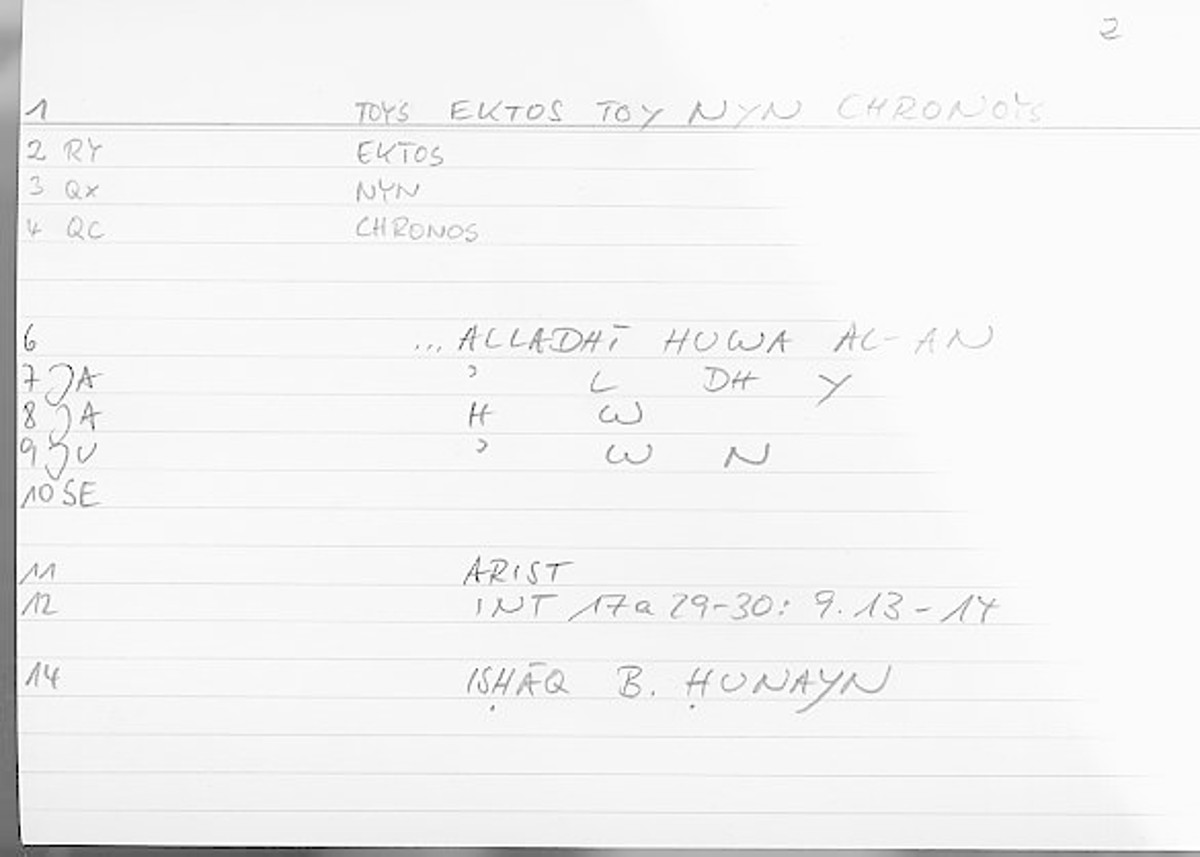 2
1 TOYS EKTOS TOY NYN CHRONOYS
2 RY EKTOS
3 Qx NYN
4 QC CHRONOS
6 ... ALLADHĪ HUWA AL-AN
7 JA ʾ L DH Y
8 JA H W
9 JU ʾ W N
10 SE
11 ARIST
12 INT 17a 29-30: 9.13-14
14 ISḤĀQ B. ḤUNAYN